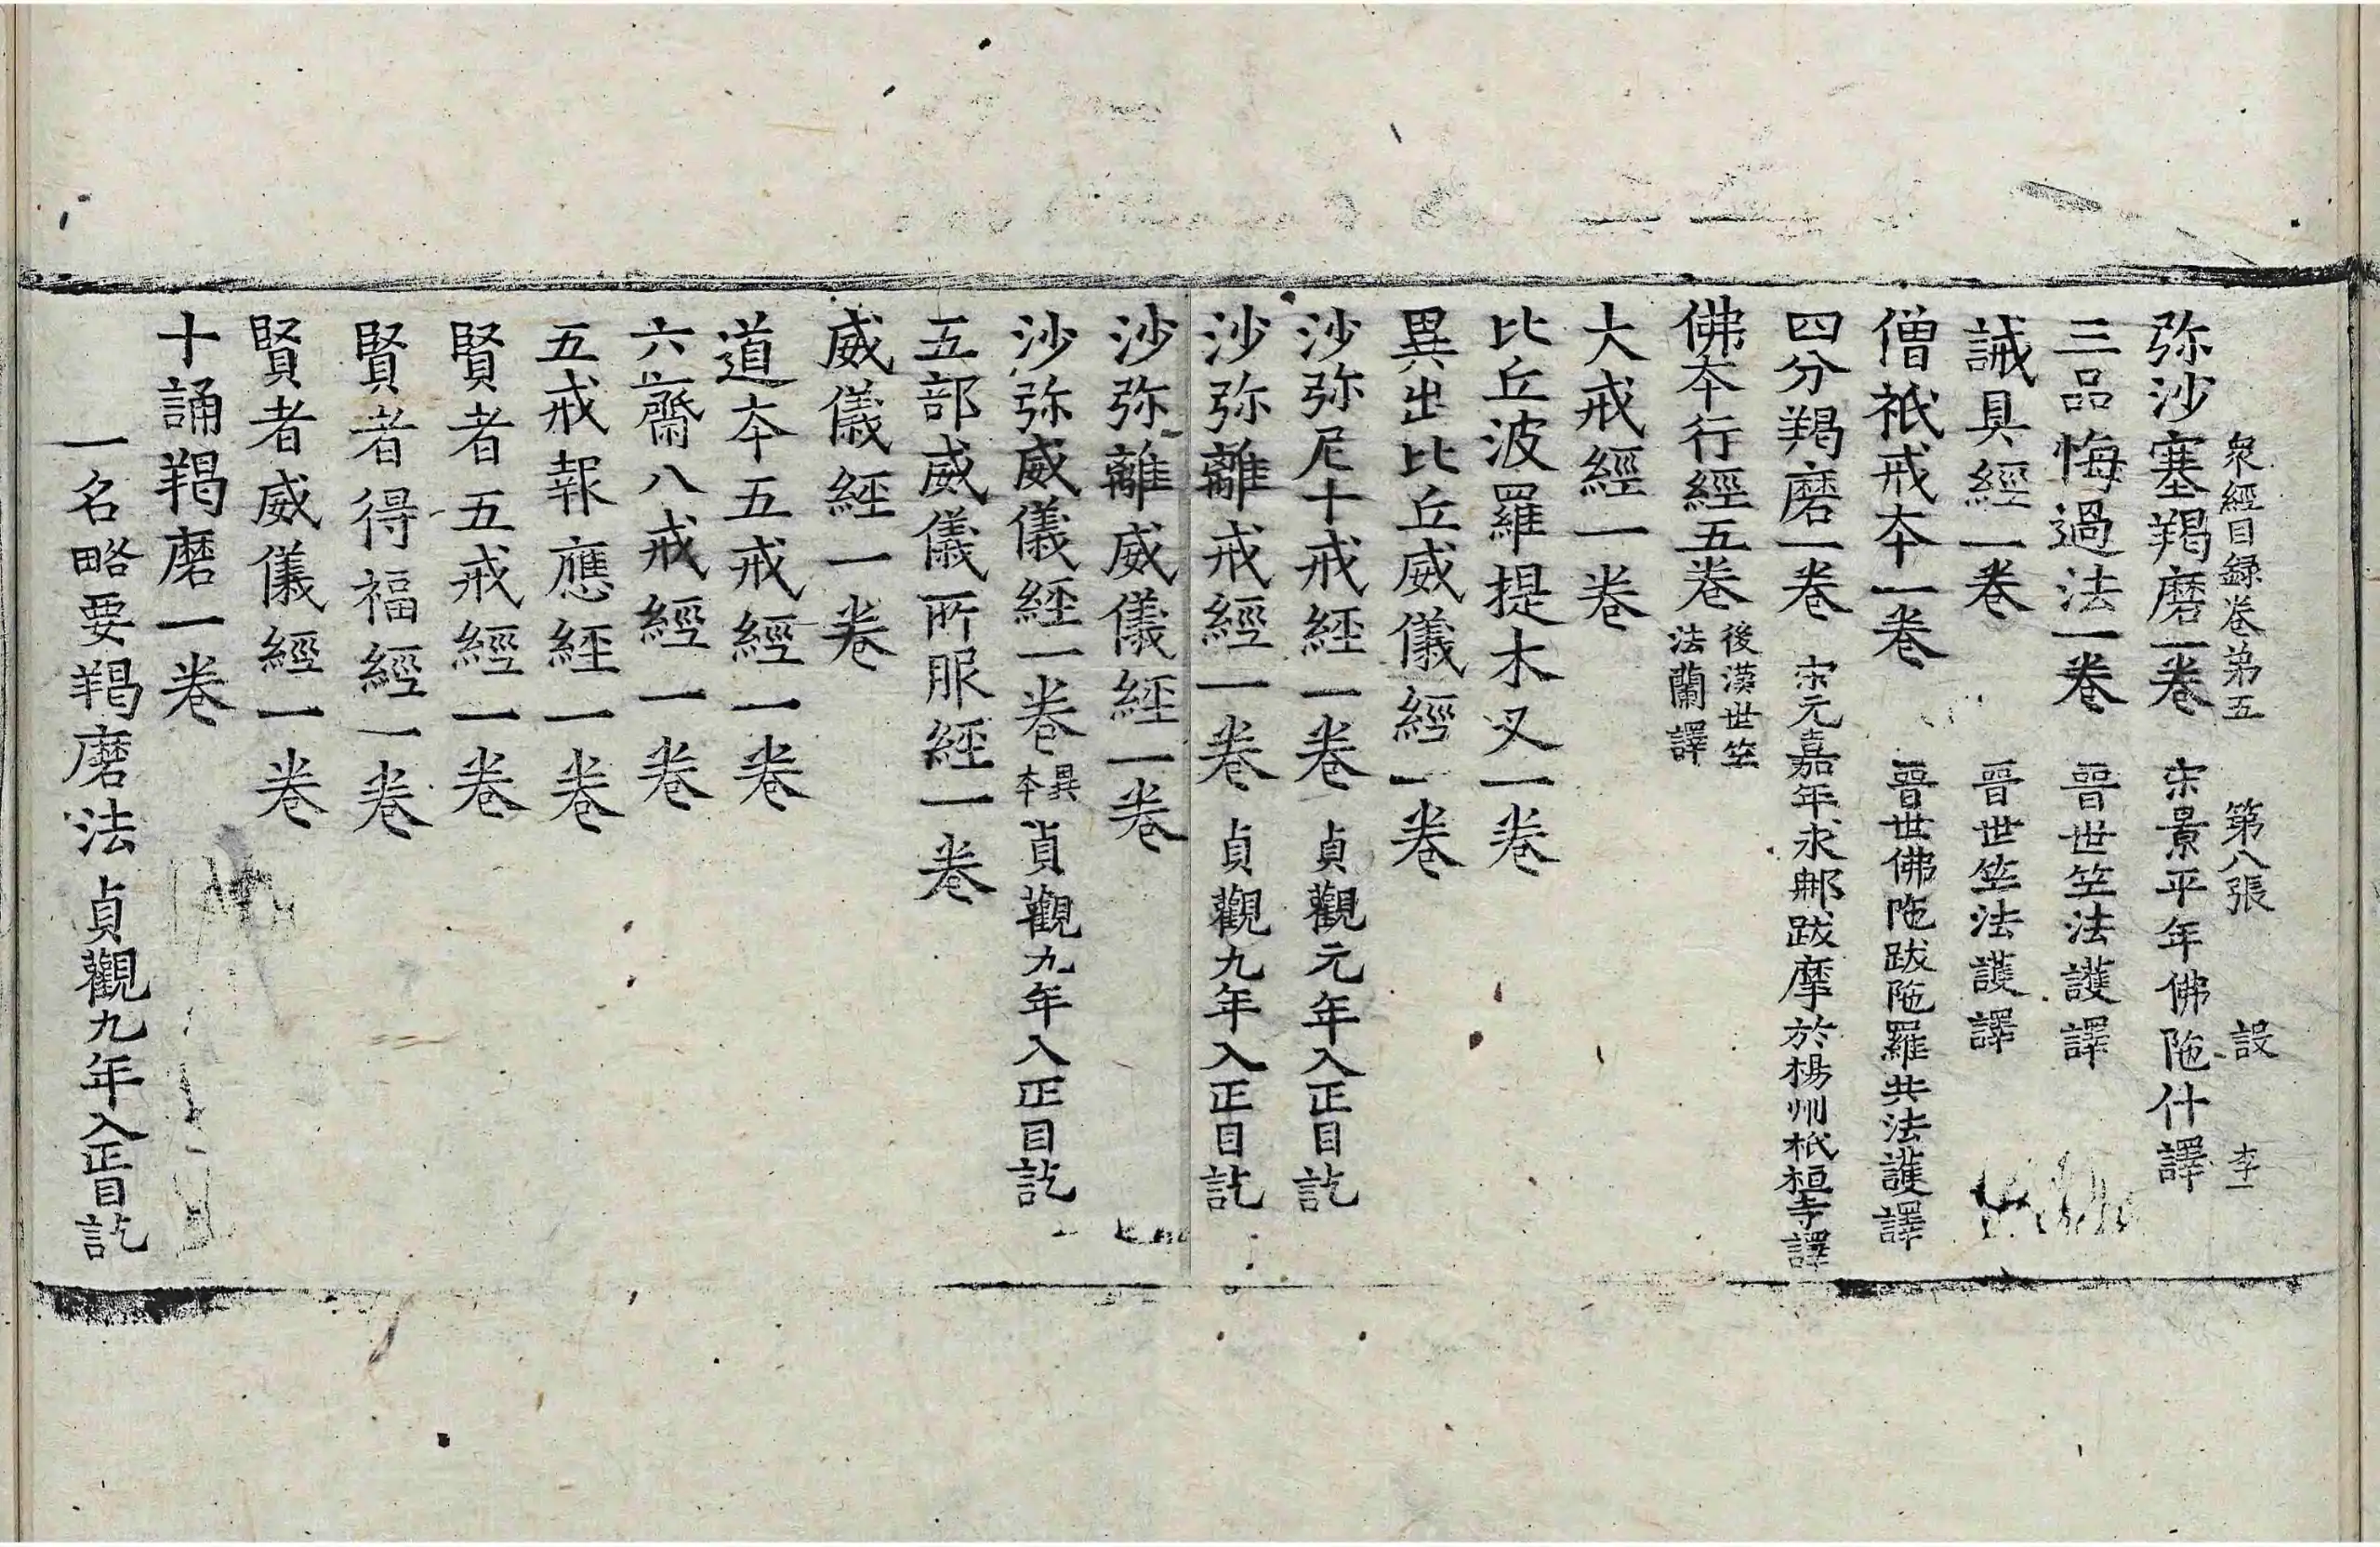 衆經目録卷第五 第八張 設 李一
弥沙塞羯磨一卷 宋景平年佛陁什譯
三品悔過法一卷 晉世竺法護譯
誡具經一卷 晉世竺法護譯
僧祇戒本一卷 晉世佛陁跋陁羅共法護譯
四分羯磨一卷 宋元嘉年求𨙻跋摩於楊州祇桓寺譯
佛本行經五卷 後漢世竺
法蘭譯
大戒經一卷
比丘波羅提木叉一卷
異出比丘威儀經一卷
沙弥尼十戒經一卷 貞觀元年入正目訖
沙弥離戒經一卷 貞觀九年入正目訖
沙弥離威儀經一卷
沙弥威儀經一卷 異本 貞觀九年入正目訖
五部威儀所服經一卷
威儀經一卷
道本五戒經一卷
六齋八戒經一卷
五戒報應經一卷
賢者五戒經一卷
賢者得福經一卷
賢者威儀經一卷
十誦羯磨一卷
一名略要羯磨法 貞觀九年入正目訖